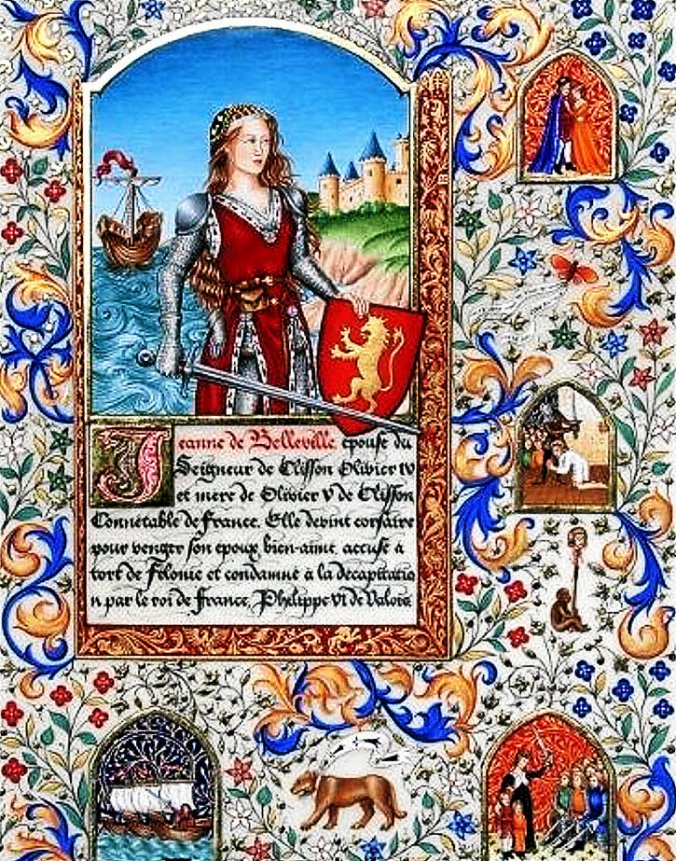 Jeanne de Belleville, epouse du
Seigneur de Clisson Olivier IV
et mere de Olivier V de Clisson
Connétable de france. Elle devint corsaire
pour venger son epoux bien-aimé, accusé à
tort de Felonie et condamné à la decapitatio
n par le roi de France, Phelippe VI de Valois.